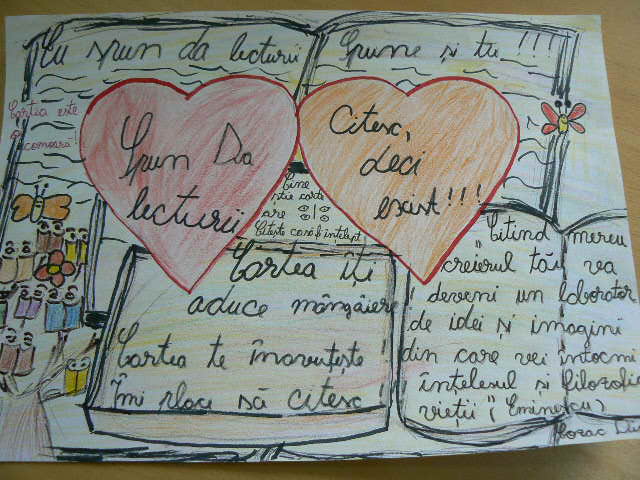 Eu spun da lecturii
Spune și tu !!!
Cartea este
o comoară!
Spun Da
lecturii
Citesc,
deci
exist!!!
Cine
știe carte
are
Citește ca să fi înțelept
Cartea îți
aduce mângâiere
Cartea te înavuțește!
Îmi place să citesc!
"Citind mereu
creierul tău va
deveni un laborator
de idei și imagini
din care vei întocmi
înțelesul și filozofia
vieții" (Eminescu)